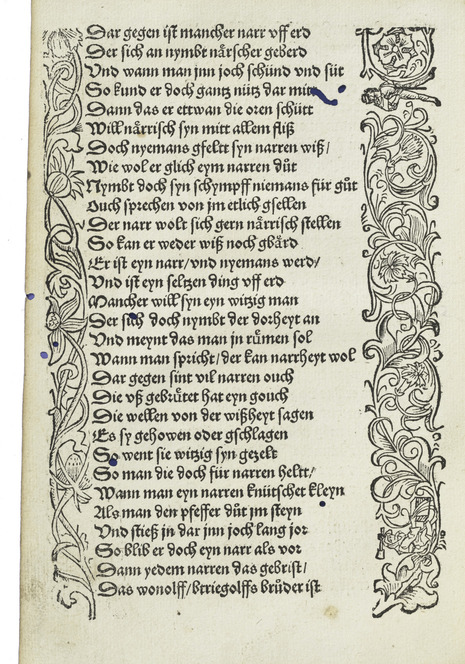 Dar gegen ist mancher narr vff erd
Der sich an nymbt nårscher geberd
Vnd wann man jnn joch schünd vnd süt
So kund er doch gantz nütz dar mitt
Dann das er ettwan die oren schütt
Will nårrisch syn mitt allem fliß
Doch nyemans gfelt syn narren wiß/
Wie wol er glich eym narren důt
Nymbt doch syn schympff niemans für gůt
Ouch sprechen von jm etlich gsellen
Der narr wolt sich gern nårrisch stellen
So kan er weder wiß noch gbård
Er ist eyn narr/vnd nyemans werd/
Vnd ist eyn seltzen ding vff erd
Mancher will syn eyn witzig man
Der sich doch nymbt der dorheyt an
Vnd meynt das man jn růmen sol
Wann man spricht/der kan narrheyt wol
Dar gegen sint vil narren ouch
Die vß gebrůtet hat eyn gouch
Die wellen von der wißheyt sagen
Es sy gehowen oder gschlagen
So went sie witzig syn gezelt
So man die doch für narren heltt/
Wann man eyn narren knütschet kleyn
Als man den pfeffer důt jm steyn
Vnd stieß jn dar jnn joch lang jor
So blib er doch eyn narr als vor
Dann yedem narren das gebrist/
Das wonolff/btriegolffs brůder ist